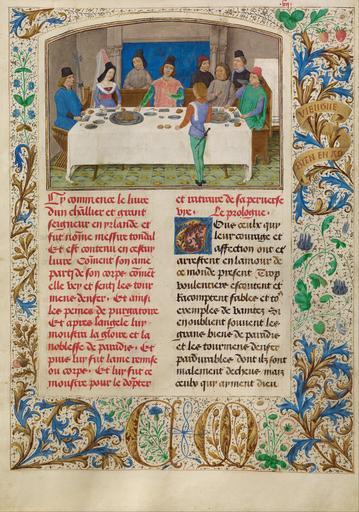 Cy commence le livre
dun chllier et grant
seigneur en yrlande et
fut nõme messire tondal
Et est contenu en cestuy
livre Cõment son ame
party de son corps cõmẽt
elle vey et senty les tour
mens denfer. Et aussi
les peines de purgatoire
Et apres langele luy
moustra la gloire et la
noblesse de paradis. Et
puis luy fut lame remise
ou corps. Et luy fut ce
et incitare de sa perverse
vye. Le prologue.
Tous ceulx qui
leur courage et
affection ont et
arrestent en lamour de
ce monde present Trop
voulentiers escoutent et
Racomptent fables et
exemples de vanitez Si
en oublient souvent les
grans biens de paradis
et les tourmens denfer
pardurables dont ilz sont
malement decheus. mais
ceulx qui ayment dieu
C M